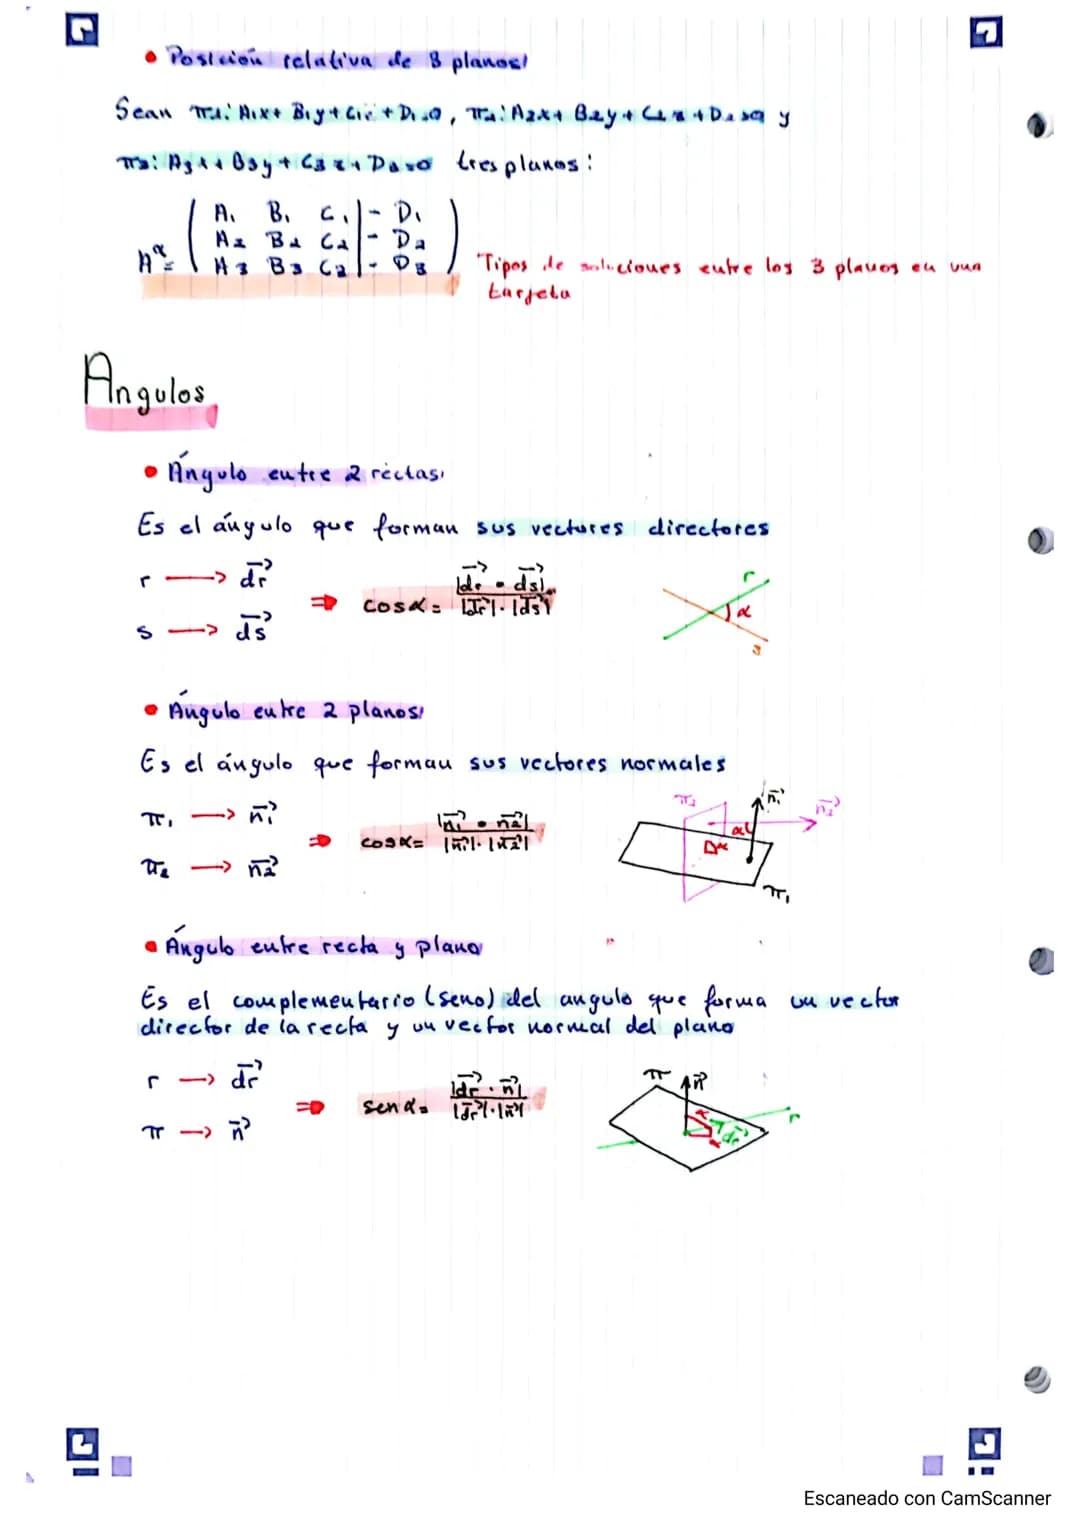 • Posición relativa de 3 planos
Sean π1: A1x + B1y + C1z + D1=0, π2: A2x + B2y + C2z + D2=0 y
π3: A3x + B3y + C3z + D3=0 tres planos:
A* = ( A1 B1 C1 | - D1
A2 B2 C2 | - D2
A3 B3 C3 | - D3 )
Tipos de soluciones entre los 3 planos en una
tarjeta
Angulos
• Ángulo entre 2 rectas
Es el ángulo que forman sus vectores directores
r → dr
s → ds
⇒ cosα = |dr • ds| / |dr| · |ds|
r
α
s
• Ángulo entre 2 planos
Es el ángulo que forman sus vectores normales
π1 → n1
π2 → n2
⇒ cosα = |n1 • n2| / |n1| · |n2|
π2
n1
n2
α
α
π1
• Ángulo entre recta y plano
Es el complementario (seno) del angulo que forma un vector
director de la recta y un vector normal del plano
r → dr
π → n
⇒ sen α = |dr · n| / |dr| · |n|
π
n
α
r
dr
α
Escaneado con CamScanner